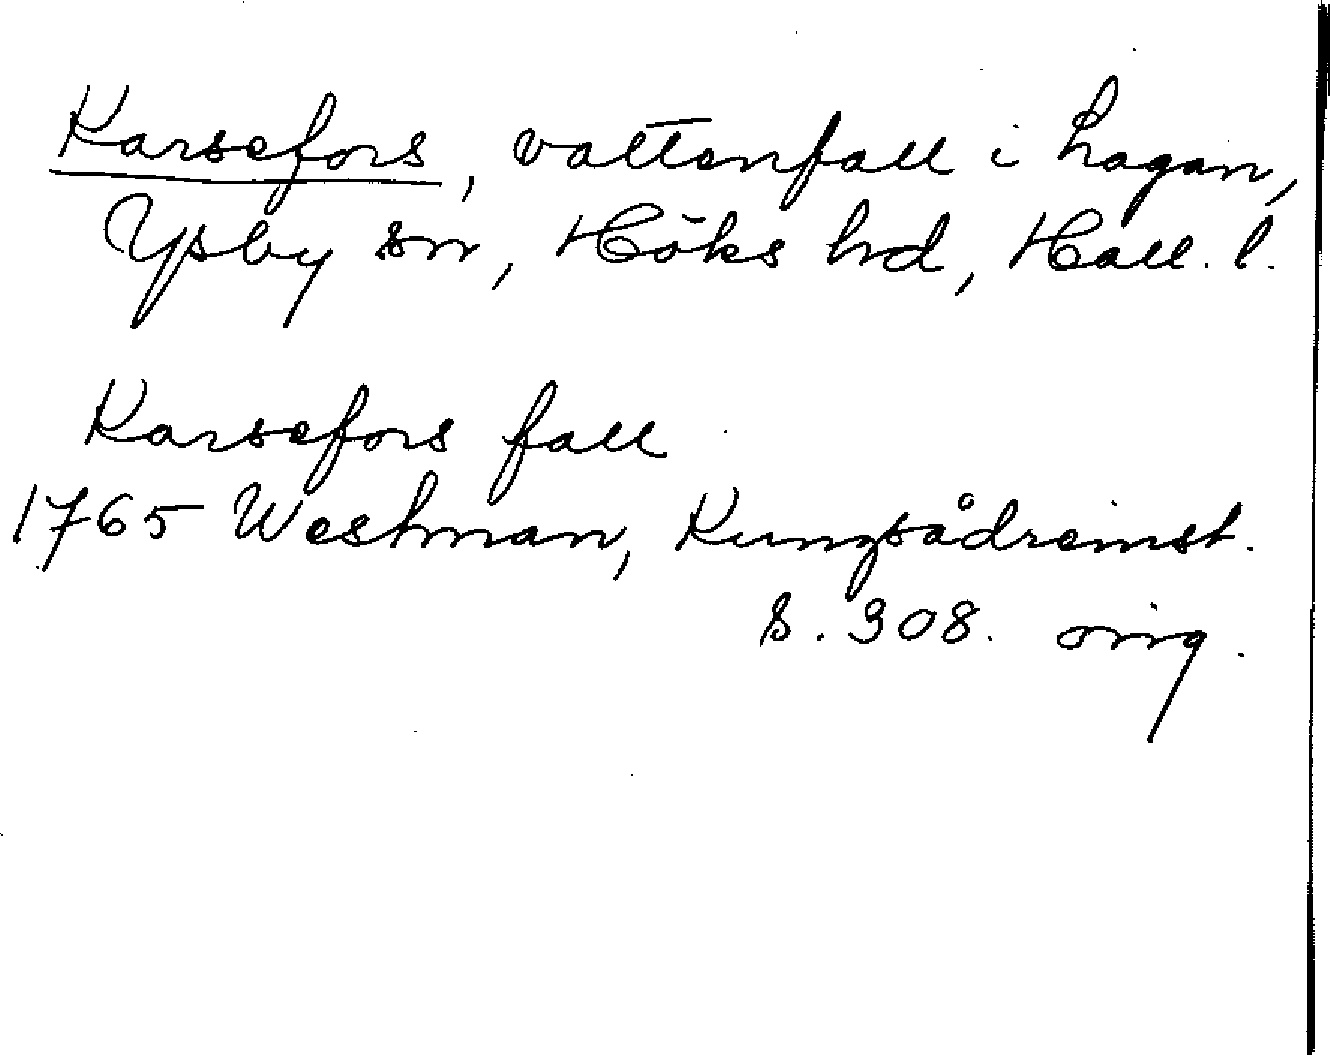 Karsefors, vattenfall i Lagan,
Ysby sn, Höks hd, Hall. l.
Karsefors fall
1765 Westman, Kungsådreinst.
s. 308. orig.